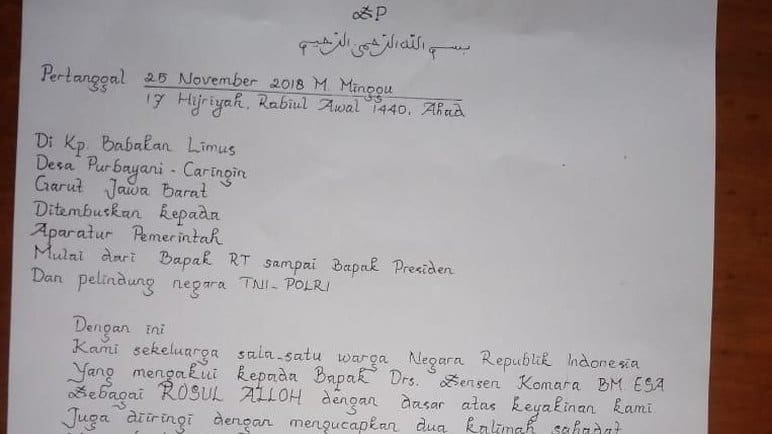 ƵP
بسم الله الرحمن الرحيم
Pertanggal 25 November 2018 M. Minggu
17 Hijriyah, Rabiul Awal 1440, Ahad
Di Kp. Babakan Limus
Desa Purbayani - Caringin
Garut Jawa Barat
Ditembuskan kepada
Aparatur Pemerintah
Mulai dari Bapak RT sampai Bapak Presiden
Dan pelindung negara TNI-POLRI
Dengan ini
Kami sekeluarga sala-satu warga Negara Republik Indonesia
Yang mengakui kepada Bapak Drs. Ƶensen Komara BM ESA
Ƶebagai ROSUL ALLOH dengan dasar atas keyakinan kami
Juga diiringi dengan mengucapkan dua kalimah sahadat